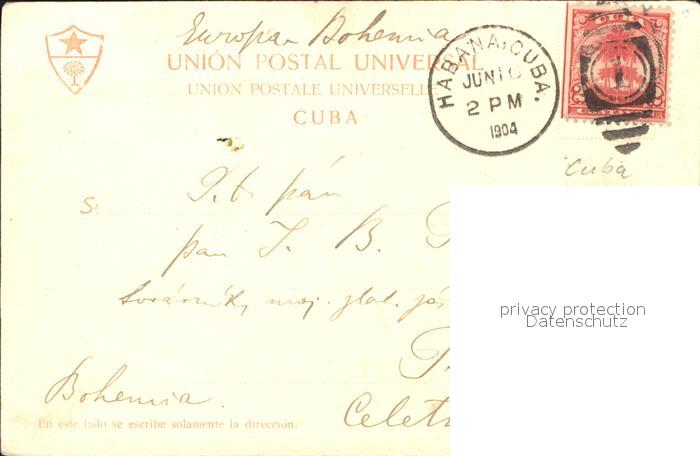 Europa Bohemia
UNIÓN POSTAL UNIVERSAL
UNION POSTALE UNIVERSELLE
CUBA
HABANA, CUBA.
JUN 10
2 PM
1904
Cuba
S:
T. t. pán
pan J. B.
továrník, maj. zlat.
privacy protection
Datenschutz
Bohemia.
Celet
En este lado se escribe solamente la dirección.